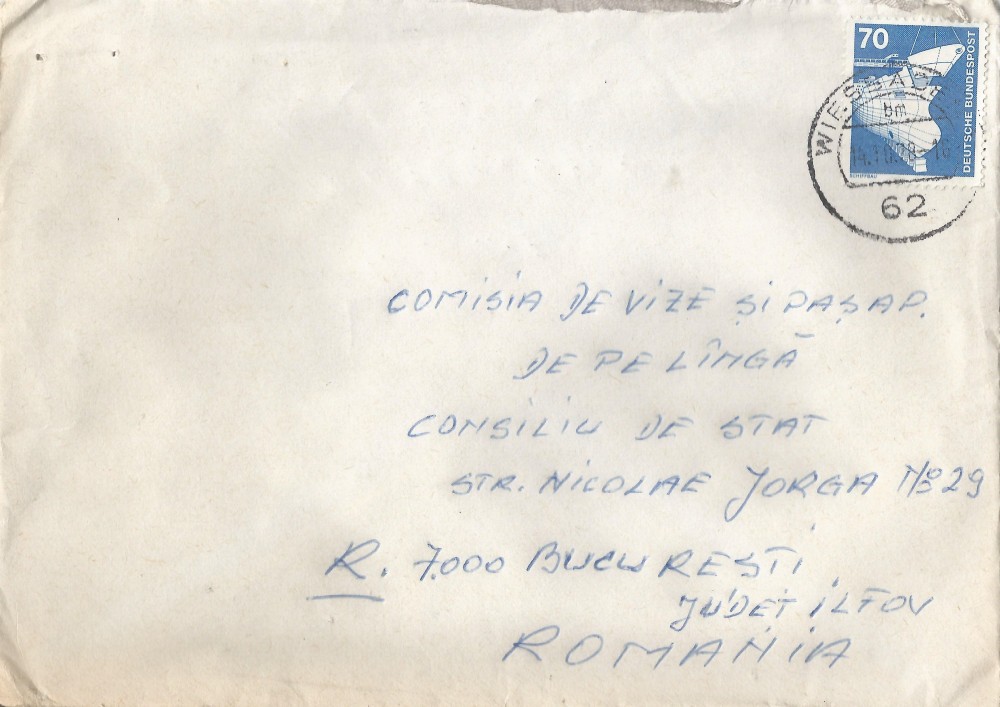 70
DEUTSCHE BUNDESPOST
SCHIFFBAU
WIESBADEN
bm
14.10.78-16
62
COMISIA DE VIZE ȘI PAȘAP.
DE PE LÎNGĂ
CONSILIU DE STAT
STR. NICOLAE JORGA No 29
R. 7000 BUCUREȘTI
JUDEȚ ILFOV
ROMANIA